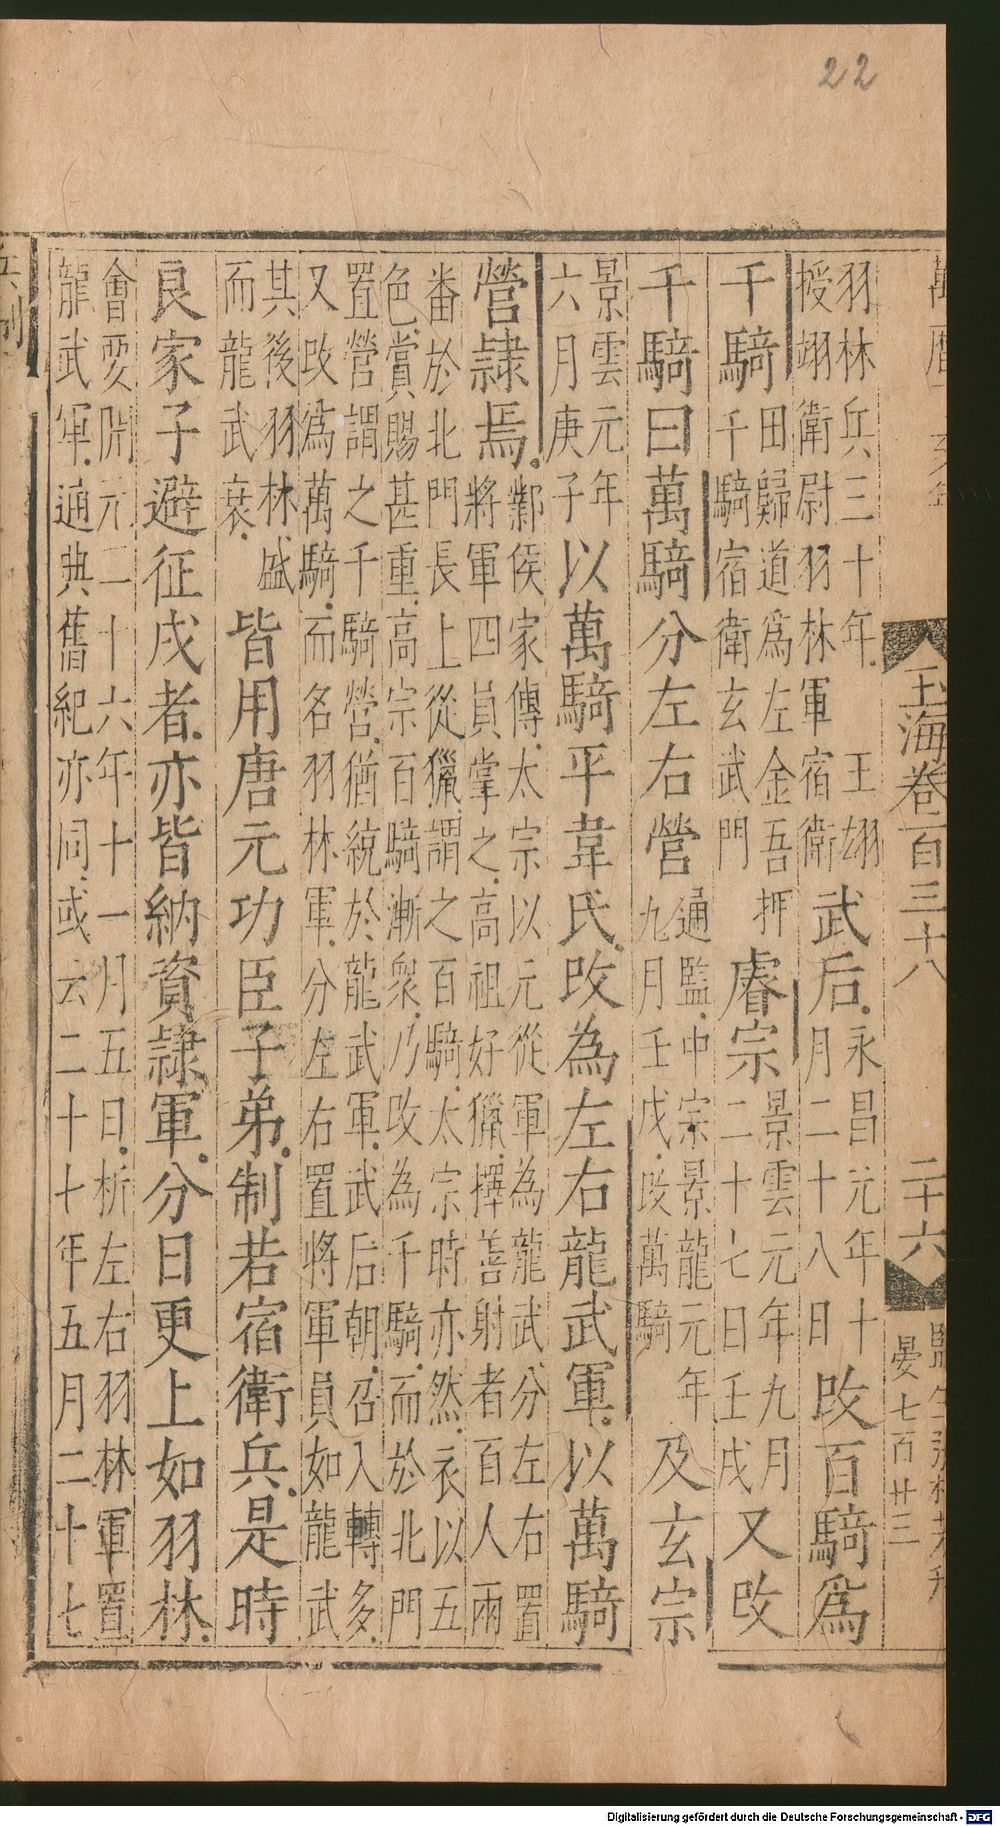 22
玉海卷一百三十八 二十六
晏七百廿三
羽林兵三十年 王翃
授翊衛尉羽林軍宿衛
武后
永昌元年十
月二十八日
改百騎爲
千騎
田歸道爲左金吾押
千騎宿衛玄武門
睿宗
景雲元年九月
二十七日壬戌
又改
千騎曰萬騎分左右營
通監中宗景龍元年
九月壬戊改萬騎
及玄宗
景雲元年
六月庚子
以萬騎平韋氏改為左右龍武軍以萬騎
營隷焉
鄴侯家傳太宗以元從軍為龍武分左右置
將軍四員掌之高祖好獵擇善射者百人兩
番於北門長上從獵謂之百騎太宗時亦然衣以五
色賞賜甚重高宗百騎漸衆乃改為千騎而於北門
置營謂之千騎營猶統於龍武軍武后朝召入轉多
又改爲萬騎而名羽林軍分左右置將軍員如龍武
其後羽林盛
而龍武衰
皆用唐元功臣子弟制若宿衛兵是時
良家子避征戍者亦皆納資隷軍分日更上如羽林
會要開元二十六年十一月五日析左右羽林軍置
龍武軍通典舊紀亦同或云二十七年五月二十七
兵制
Digitalisierung gefördert durch die Deutsche Forschungsgemeinschaft - DFG